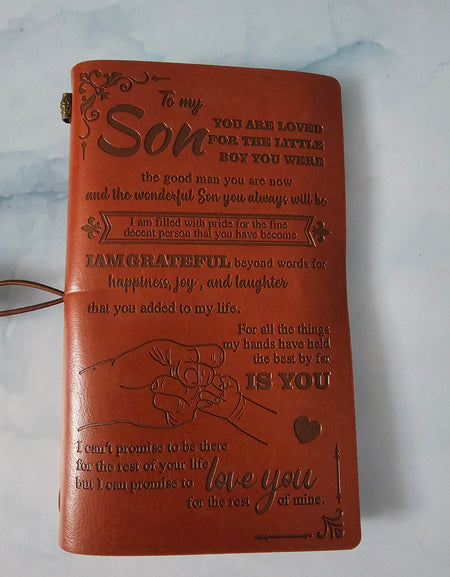 To my
Son
YOU ARE LOVED
FOR THE LITTLE
BOY YOU WERE
the good man you are now
and the wonderful Son you always will be
I am filled with pride for the fine
decent person that you have become
IAMGRATEFUL beyond words for
happiness, joy , and laughter
that you added to my life.
For all the things
my hands have held
the best by far
IS YOU
I can't promise to be there
for the rest of your life
but I can promise to love you
for the rest of mine.